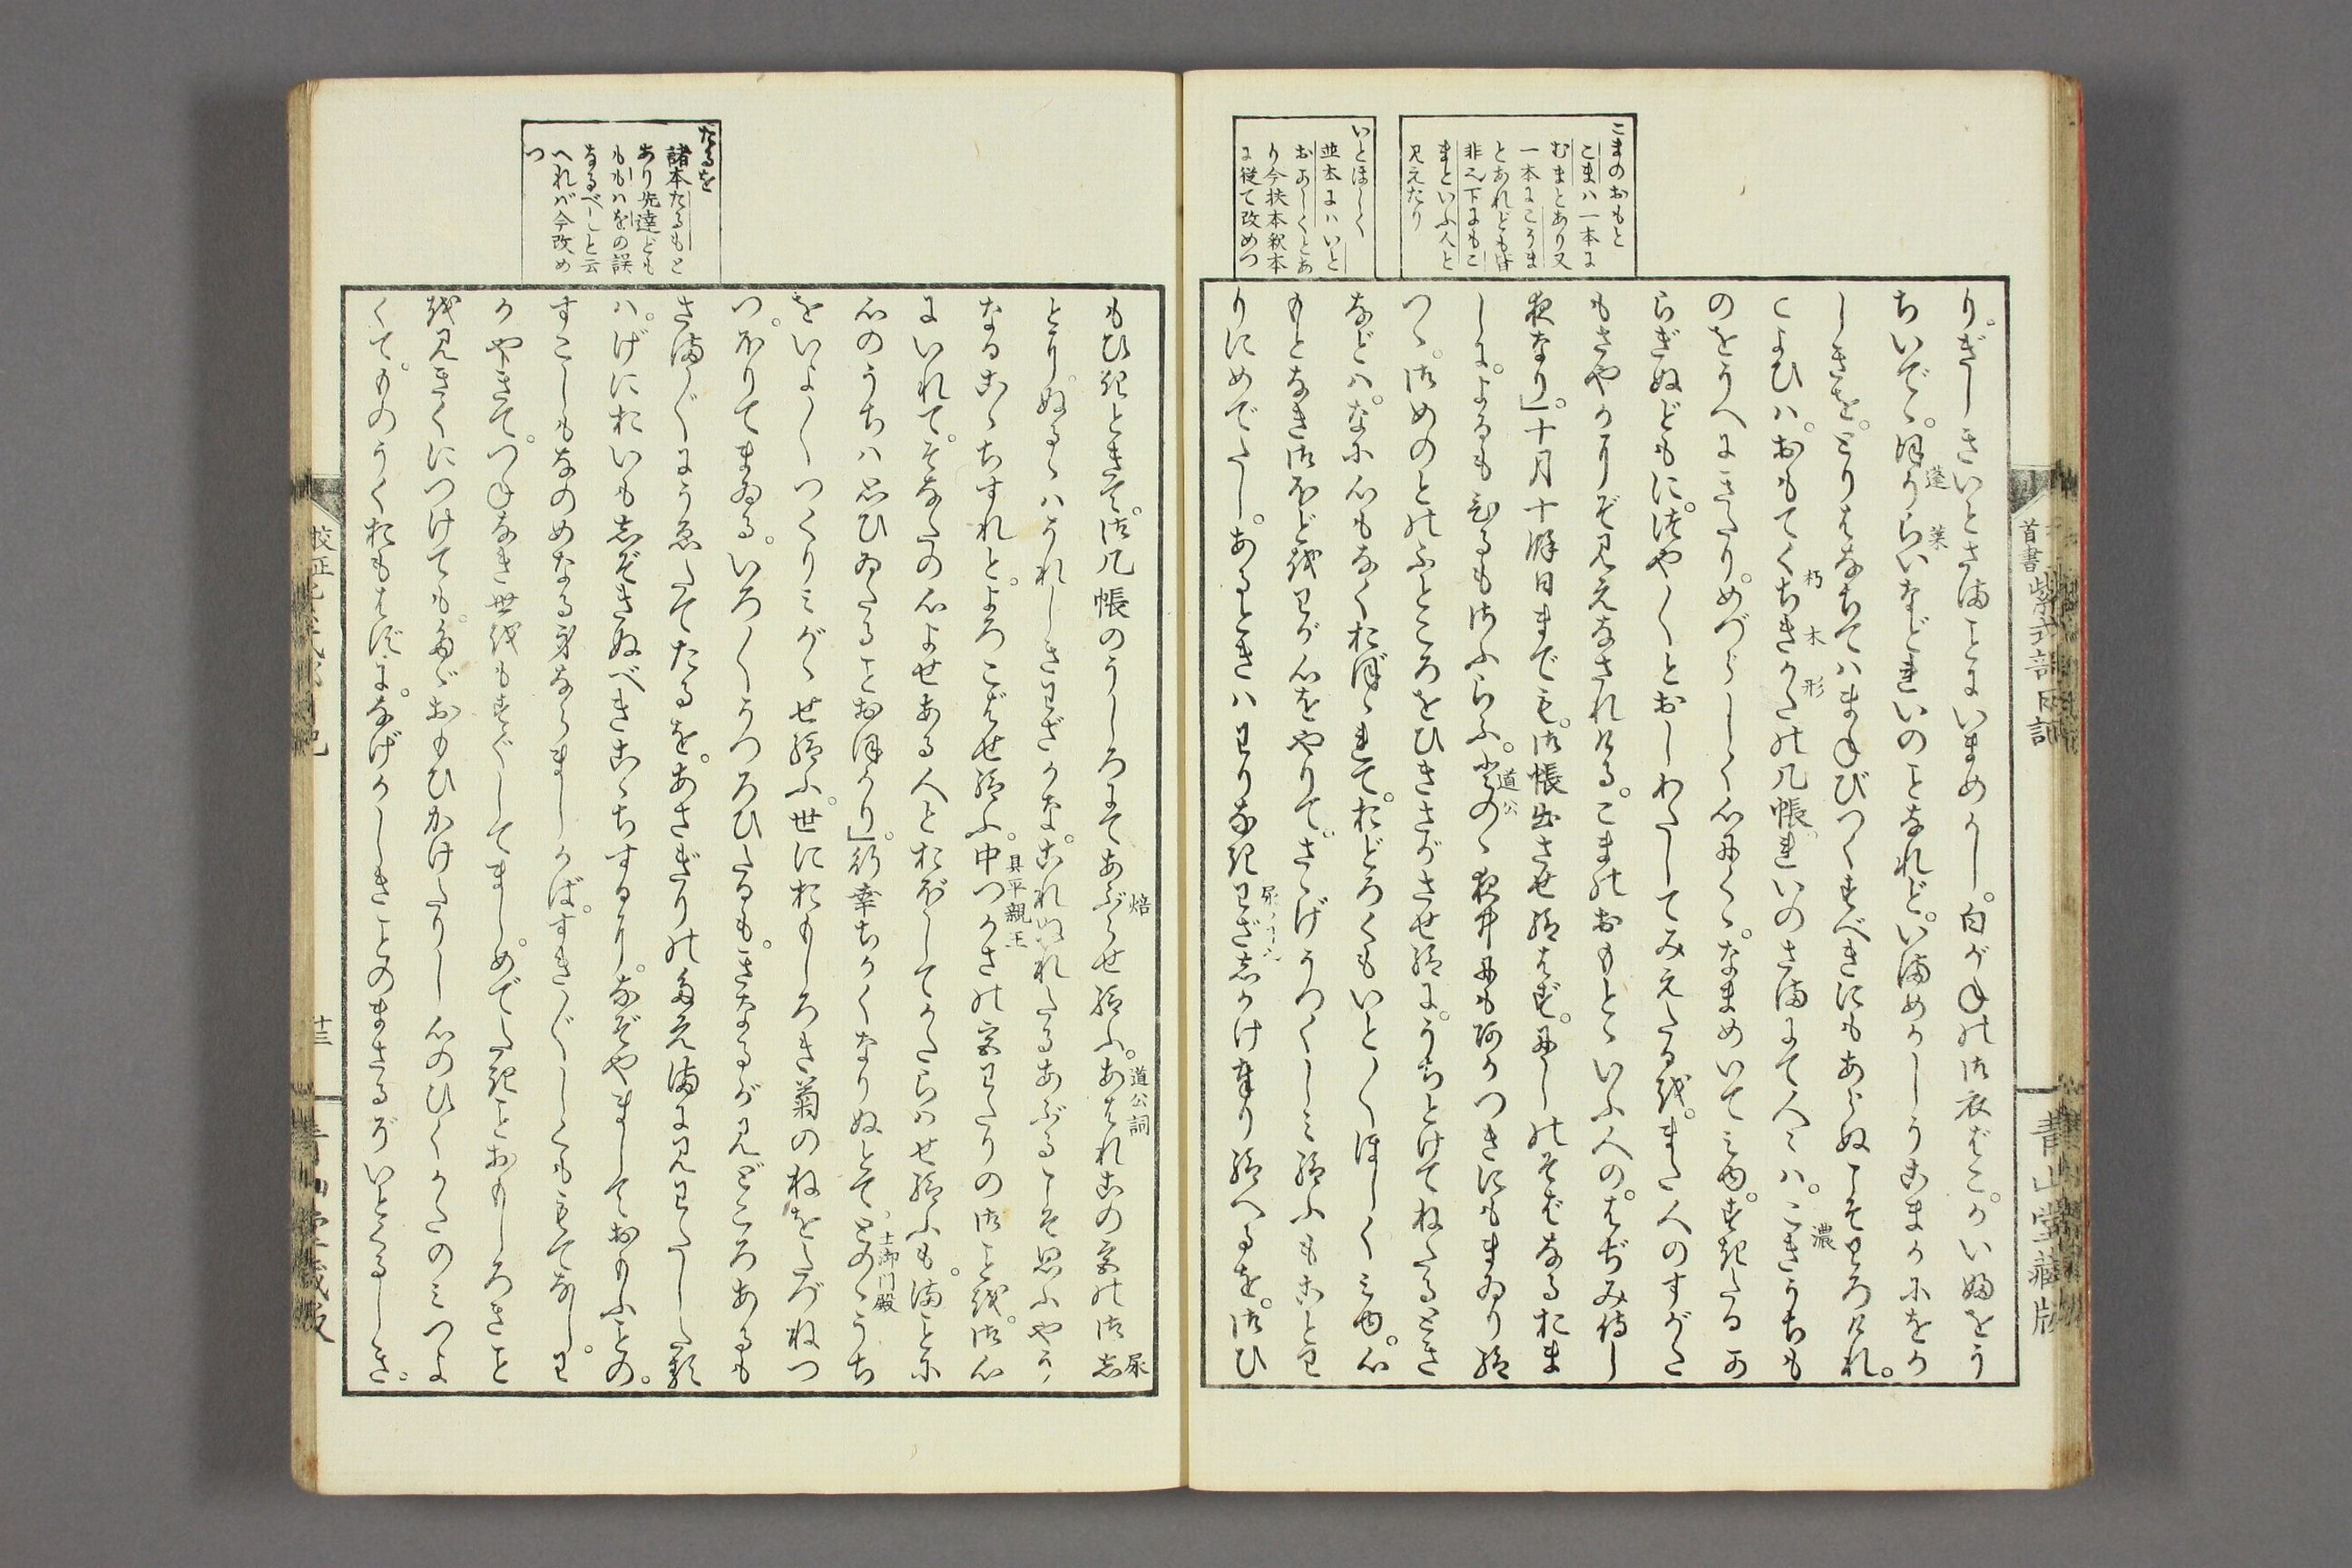 こまのおもと
こまハ一本に
むまとあり又
一本にこうま
とあれども皆
非也下にもこ
まといふ人と
見えたり
いとほしく
並本にハいと
おかしくとあ
り今扶本釈本
に従て改めつ
り。ぎしきいとさまことにいまめかし。白がねの御衣ばこ。かいぶをう
ちいでゝ。ほうらいなどれいのことなれど。いまめかしうこまかにをか
しきを。とりはなちてハまねびつくすべきにもあらぬこそわろけれ。
こよひハ。おもてくちきかたの几帳れいのさまにて人〻ハ。こきうちも
のをうへにきたり。めづらしく心にくゝ。なまめいてミゆ。すきたるか
らぎぬどもに。つや〳〵とおしわたしてみえたるを。また人のすがた
もさやかにぞ見えなされける。こまのおもとゝいふ人の。はぢみ侍し
夜なり」。十月十余日まで も。御帳出させ給はず。にしのそばなるおま
しに。よるもひるもさふらふ。とのゝ夜中にも暁にもまゐり給
つゝ。御めのとのふところをひきさがさせ給に。うちとけてねたるとき
などハ。なに心もなくおぼゝれて。おどろくもいと〳〵ほしくミゆ。心
もとなき御ほどをわが心をやりて。さゝげうつくしミ給ふもことわ
りにめでたし。あるときハわりなきわざしかけ奉り給へるを。御ひ
蓬
莱
朽
木
形
濃
道公
首書紫式部日記
青山堂蔵版
たるを
諸本たるもと
あり先達ども
もゝハをの誤
なるべしと云
へれバ今改め
つ
もひきときて。御几帳のうしろにてあぶらせ給ふ。あはれこの宮の御し
とに。ぬるゝハうれしきわざかな。これぬれたるあぶるこそ思ふやう
なるこゝちすれと。よろこばせ給ふ。中つかさの宮わたりの御ことを。御心
にいれて。そなたの心よせある人とおぼしてかたらはせ給ふも。まことに
心のうちハ思ひゐたることおほかり」。行幸ちかくなりぬとて。とのゝうち
をいよ〳〵つくりミがゝせ給ふ。世におもしろき菊のねをたづねつ
つ。ほりてまゐる。いろ〳〵うつろひたるも。きなるが見どころあるも
さま〴〵にうゑたてたるを。あさぎりのたえまに見わたしたる
ハ。げにおいもしぞきぬべきこゝちするに。なぞやましておもふことの。
すこしもなのめなる身ならましかば。すき〴〵しくももてなし。わ
かやぎて。つねなき世をもすぐしてまし。めでたきことおもしろきこと
を見きくにつけても。たゞおもひかけたりし心のひくかたのミつよ
くて。ものうくおもはずに。なげかしきことのまさるぞいとくるしき。
焙
道公詞
尿
具平親王
土御門殿
廿三